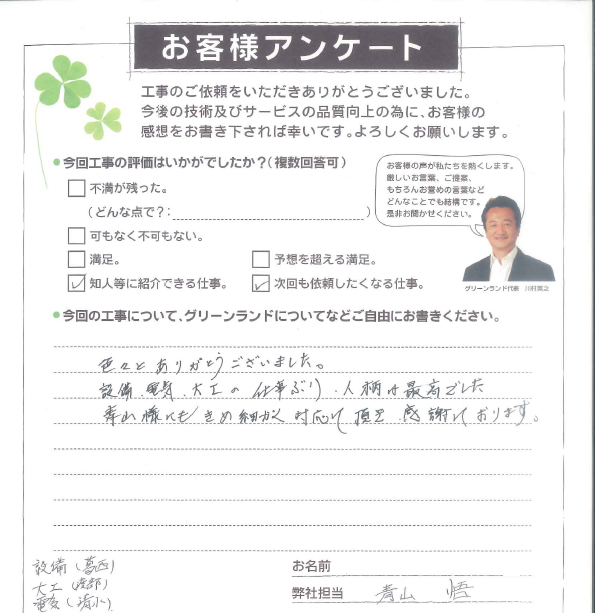 お客様アンケート
工事のご依頼をいただきありがとうございました。
今後の技術及びサービスの品質向上の為に、お客様の
感想をお書き下されば幸いです。よろしくお願いします。
●今回工事の評価はいかがでしたか?(複数回答可)
不満が残った。
(どんな点で?: )
可もなく不可もない。
満足。 予想を超える満足。
知人等に紹介できる仕事。 次回も依頼したくなる仕事。
お客様の声が私たちを熱くします。
厳しいお言葉、ご提案、
もちろんお誉めの言葉など
どんなことでも結構です。
是非お聞かせください。
グリーンランド代表 川村寛之
●今回の工事について、グリーンランドについてなどご自由にお書きください。
色々とありがとうございました。
設備、電気、大工の仕事ぶり、人柄は最高でした
青山様にもきめ細かく対応して頂き 感謝しております。
設備(葛西)
大工(渡部)
電気(清水)
お名前
弊社担当 青山 悟